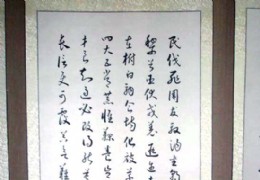 民伐罪周發殷湯坐朝
黎首臣伏戎羌遐邇壹
在樹白駒食場化被草
四大五常恭惟鞠養豈
才良知過必改得能莫
長信使可覆器欲難